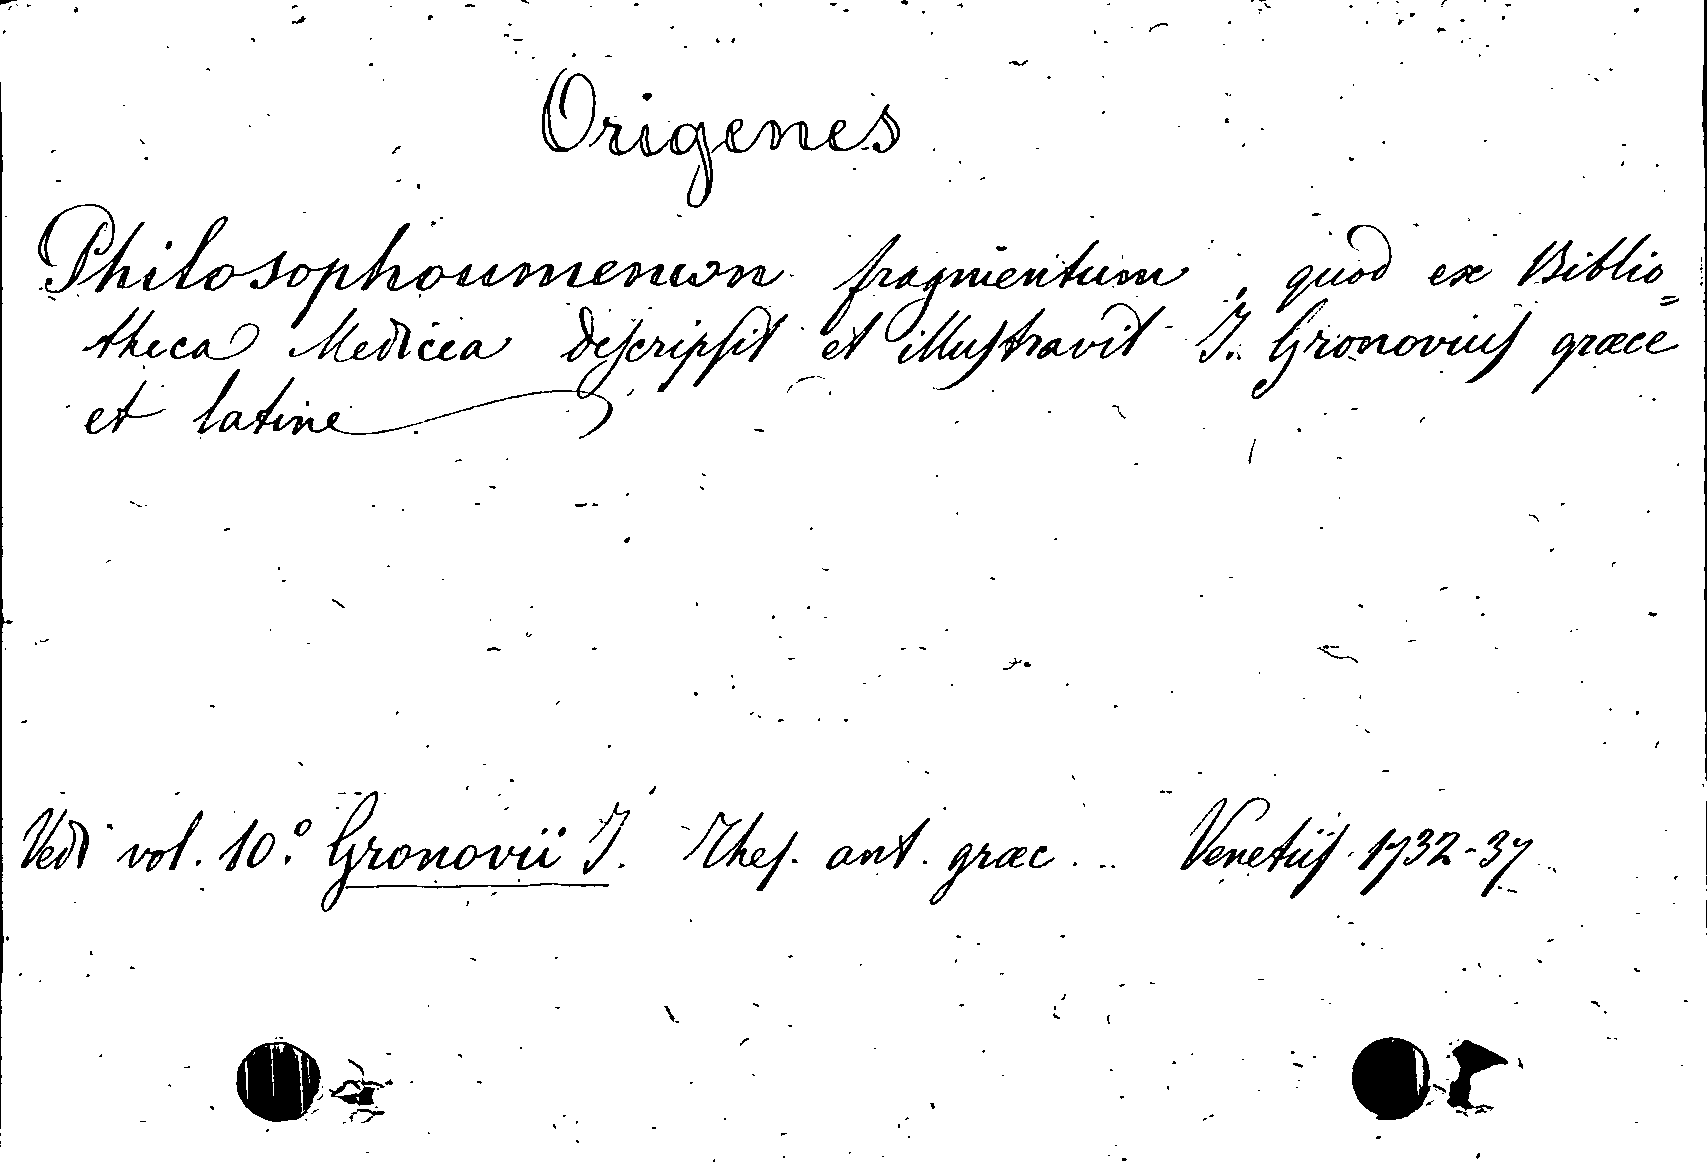 Origenes
Philosophoumenωn fragmentum, quod ex Biblio=
theca Medicea descripsit et illustravit J. Gronovius græce
et latine
Vedi vol. 10.º Gronovii J. Thes. ant. græc... Venetiis 1732-37